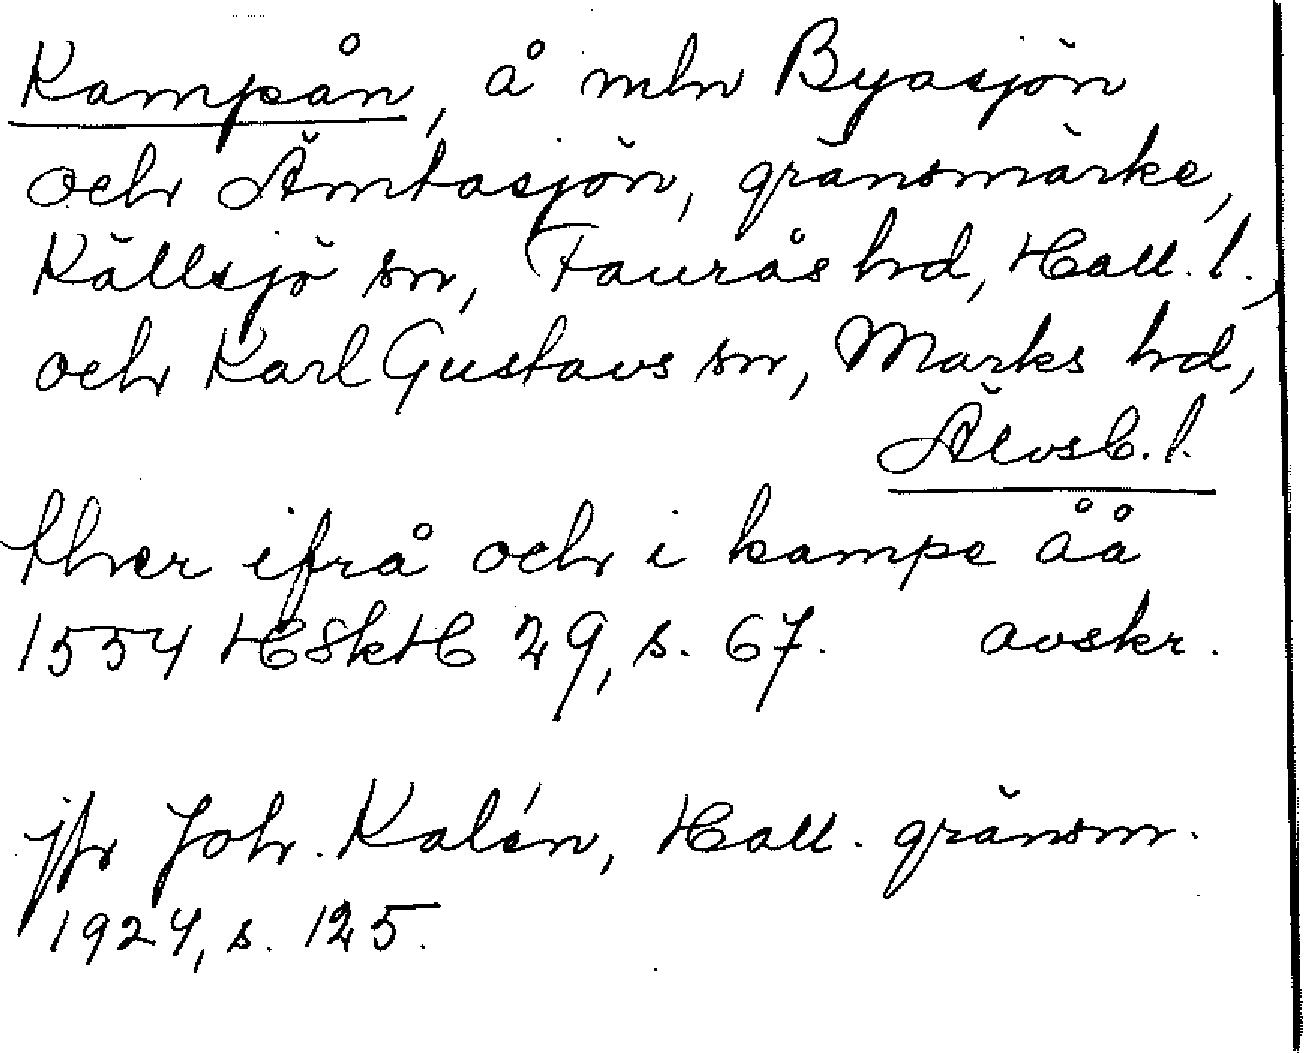 Kampån, å mln Byasjön
och Ämtasjön, gränsmärke,
Källsjö sn, Faurås hd, Hall. l.,
och Karl Gustavs sn, Marks hd,
Älvsb. l.
ther ifrå och i kampe åå
1554 HSkH 29, s. 67. avskr.
jfr Joh. Kalén, Hall. gränsm.
1924, s. 125.